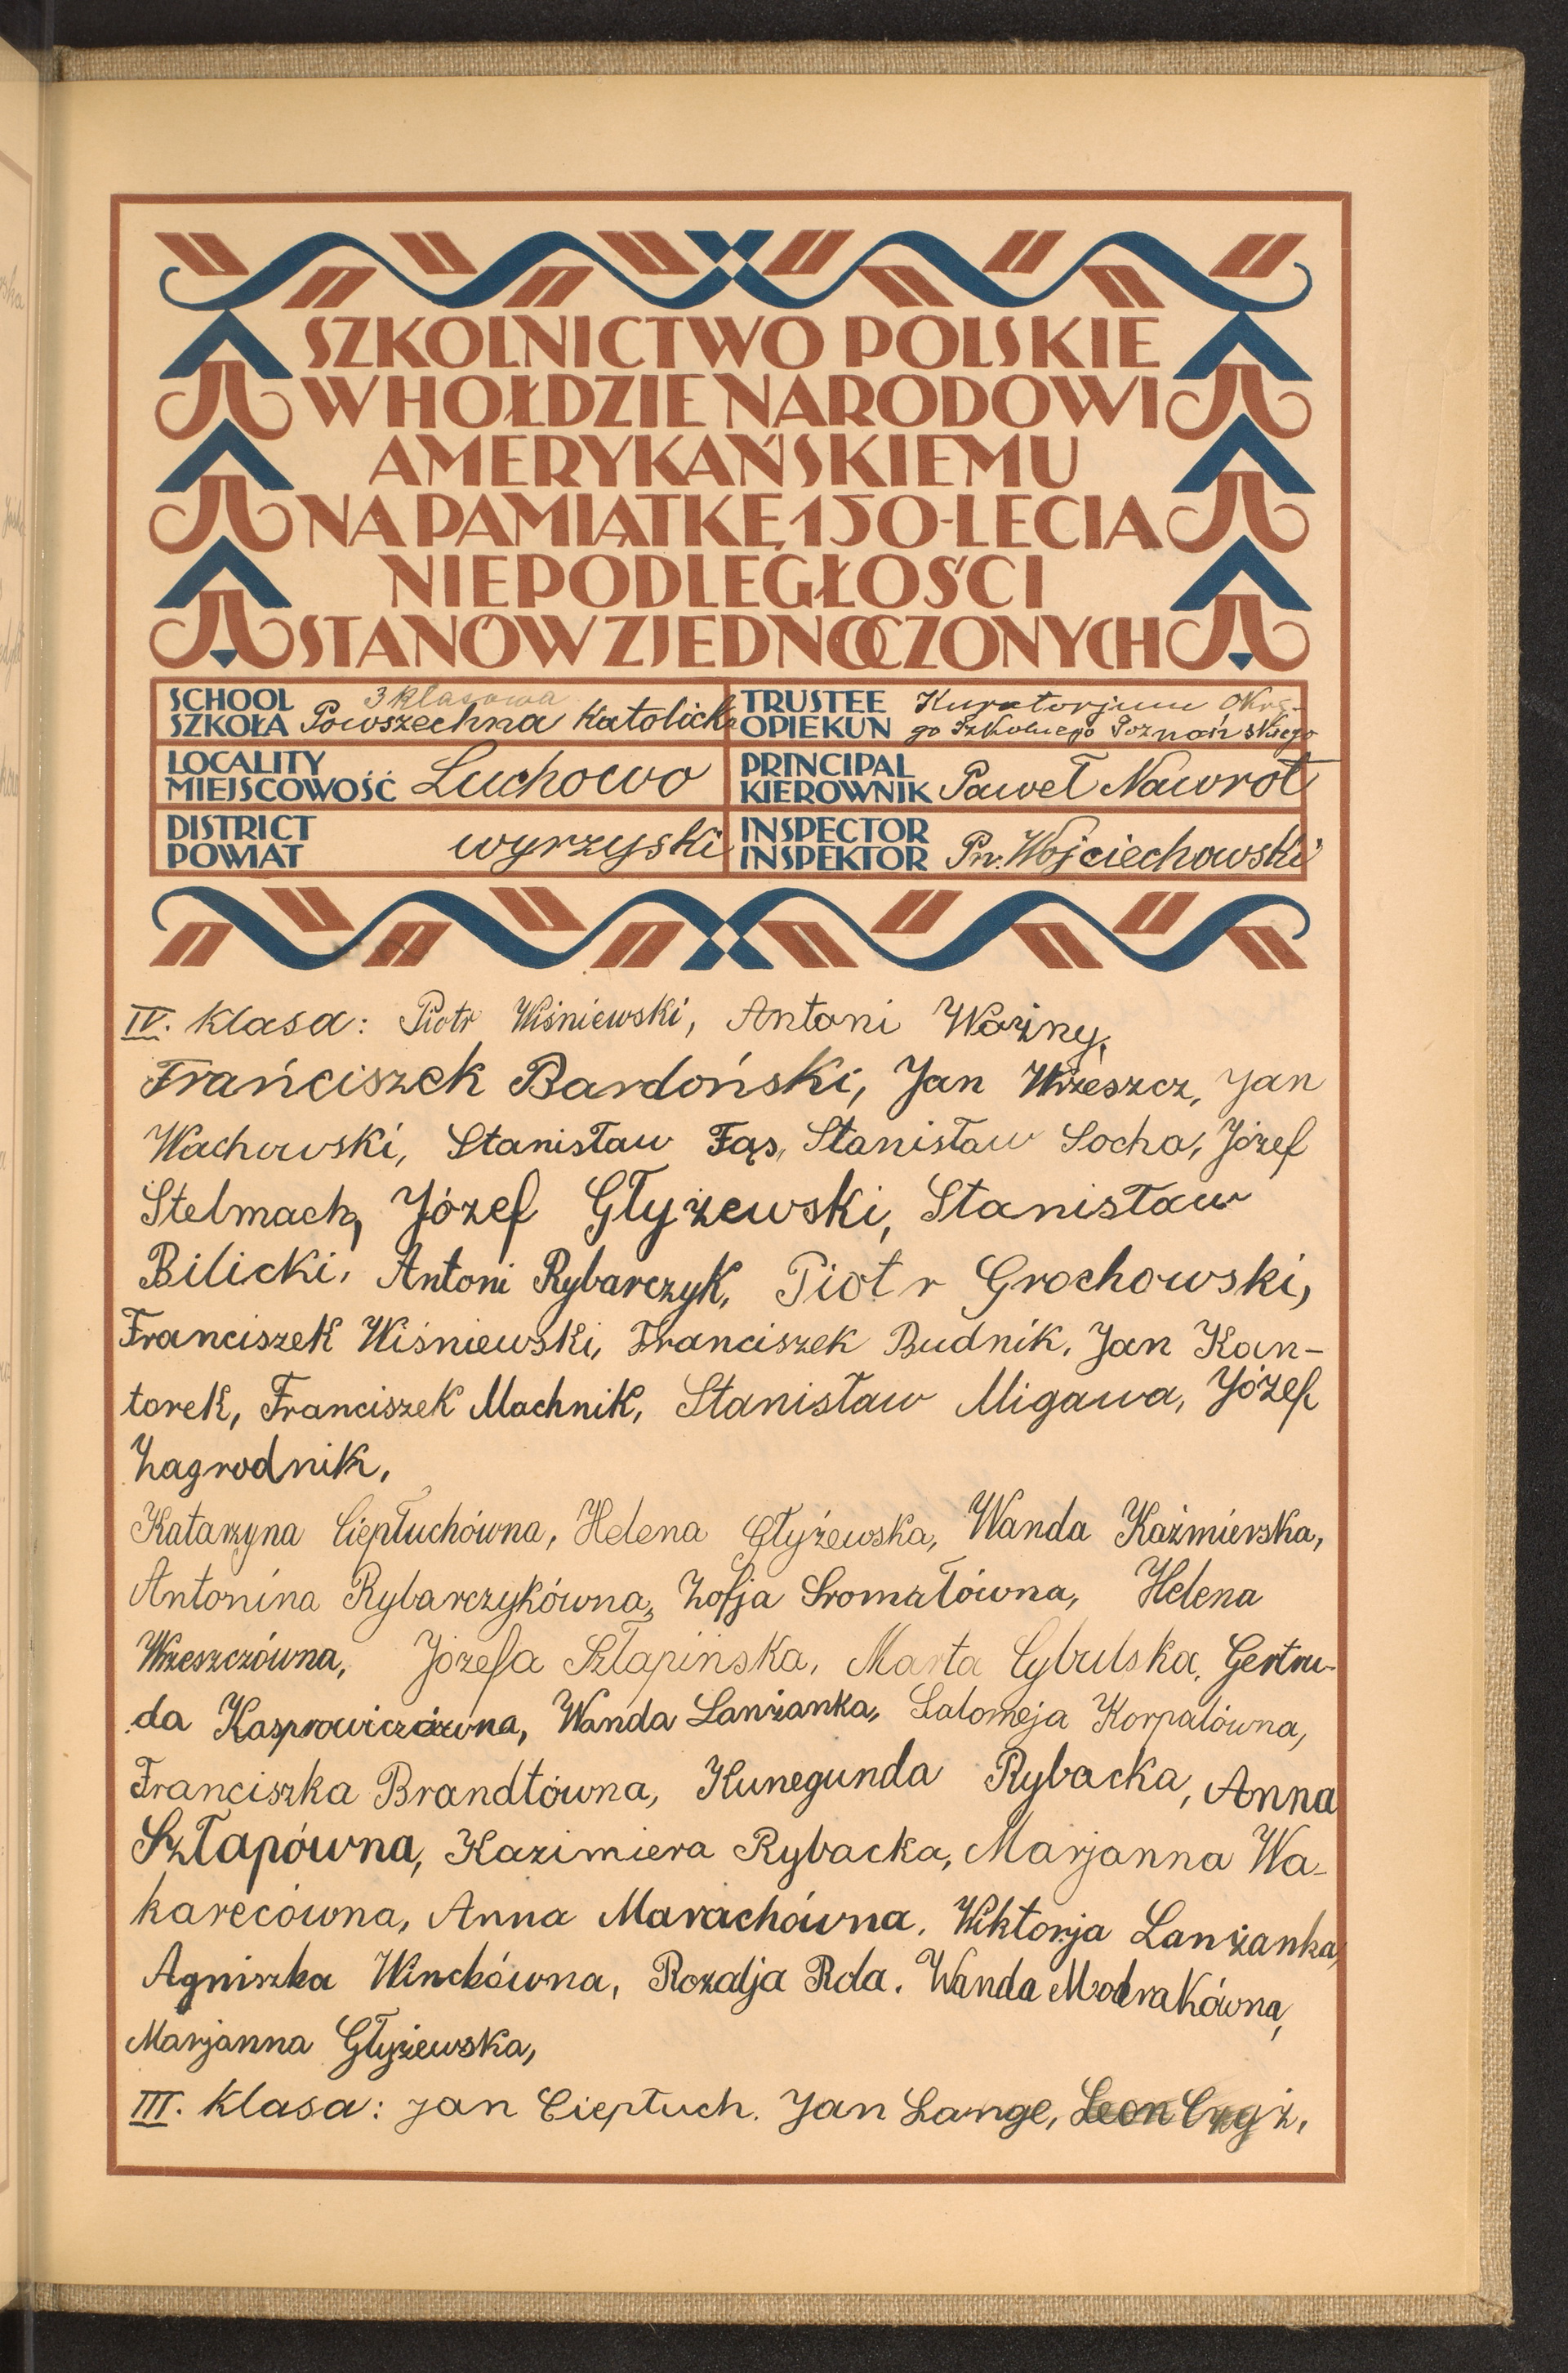 SZKOLNICTWO POLSKIE
W HOŁDZIE NARODOWI
AMERYKAŃSKIEMU
NA PAMIĄTKĘ 150-LECIA
NIEPODLEGŁOŚCI
STANÓW ZJEDNOCZONYCH
SCHOOL
SZKOŁA
3 klasowa
Powszechna Katolicka
TRUSTEE
OPIEKUN
Kuratorjum Okrę-
go Szkolnego Poznańskiego
LOCALITY
MIEJSCOWOŚĆ
Luchowo
PRINCIPAL
KIEROWNIK
Paweł Nawrot
DISTRICT
POWIAT
wyrzyski
INSPECTOR
INSPEKTOR
Pn. Wojciechowski
IV. Klasa: Piotr Wiśniewski, Antoni Ważny,
Frańciszek Bardoński, Jan Wrzeszcz, Jan
Wachowski, Stanisław Fąs, Stanisław Socha, Józef
Stelmach, Józef Głyżewski, Stanisław
Bilicki, Antoni Rybarczyk, Piotr Grochowski,
Franciszek Wiśniewski, Franciszek Budnik, Jan Kan-
torek, Franciszek Machnik, Stanisław Migawa, Józef
Zagrodnik,
Katarzyna Ciepłuchówna, Helena Głyżewska, Wanda Kaźmierska,
Antonina Rybarczykówna, Zofja Sromałówna, Helena
Wrzeszczówna, Józefa Szłapińska, Marta Cybulska, Gertru-
da Kasprowiczówna, Wanda Lanżanka, Salomeja Korpalówna,
Franciszka Brandtówna, Kunegunda Rybacka, Anna
Szłapówna, Kazimiera Rybacka, Marjanna Wa-
karecówna, Anna Marachówna, Wiktorja Lanżanka,
Agniszka Winckówna, Rozalja Rda. Wanda Modrakówna,
Marjanna Głyżewska,
III. Klasa: Jan Ciepłuch. Jan Lange, Leon Czyż,